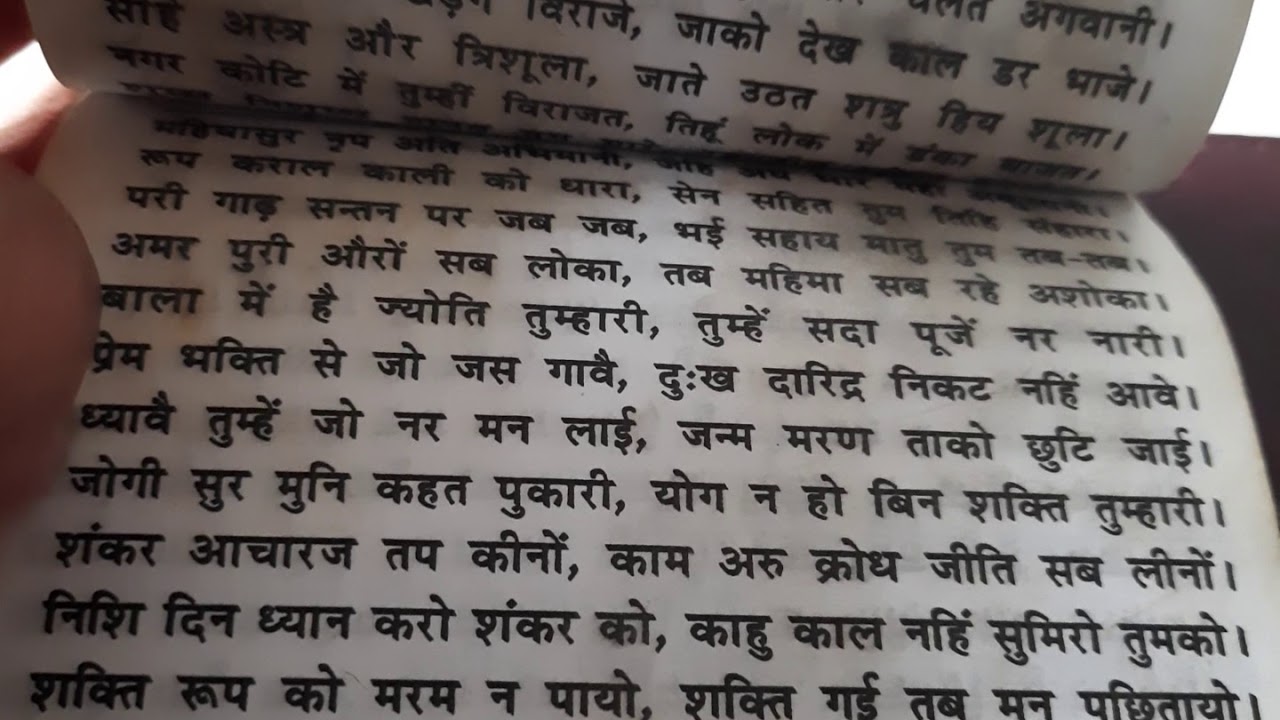 विराजे, जाको देख काल डर भाजे।
सोहे अस्त्र और त्रिशूला, जाते उठत शत्रु हिय शूला।
नगर कोटि में तुम्हीं विराजत, तिहूं लोक में डंका बाजत।
महिषासुर नृप अति अभिमानी,
रूप कराल काली को धारा, सेन सहित तुम तिहि संहारा।
परी गाढ़ सन्तन पर जब जब, भई सहाय मातु तुम तब-तब।
अमर पुरी औरों सब लोका, तब महिमा सब रहे अशोका।
बाला में है ज्योति तुम्हारी, तुम्हें सदा पूजें नर नारी।
प्रेम भक्ति से जो जस गावै, दुःख दारिद्र निकट नहिं आवे।
ध्यावै तुम्हें जो नर मन लाई, जन्म मरण ताको छुटि जाई।
जोगी सुर मुनि कहत पुकारी, योग न हो बिन शक्ति तुम्हारी।
शंकर आचारज तप कीनों, काम अरु क्रोध जीति सब लीनों।
निशि दिन ध्यान करो शंकर को, काहु काल नहिं सुमिरो तुमको।
शक्ति रूप को मरम न पायो, शक्ति गई तब मन पछितायो।